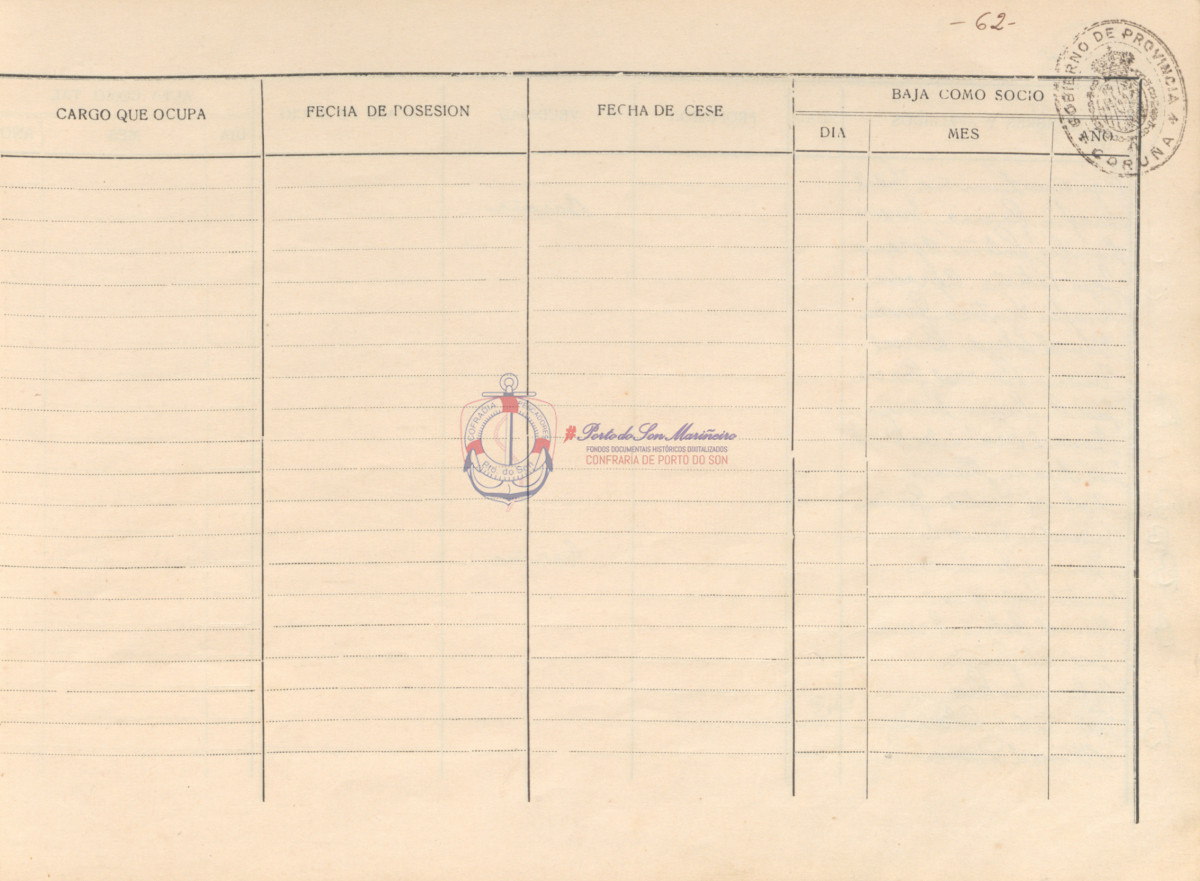 - 62 -
GOBIERNO DE PROVINCIA
CORUÑA
CARGO QUE OCUPA
FECHA DE POSESION
FECHA DE CESE
BAJA COMO SOCIO
DIA
MES
AÑO
COFRADIA
PESCADORES
Pto. do Son
#Porto do Son Mariñeiro
FONDOS DOCUMENTAIS HISTÓRICOS DIXITALIZADOS
CONFRARÍA DE PORTO DO SON